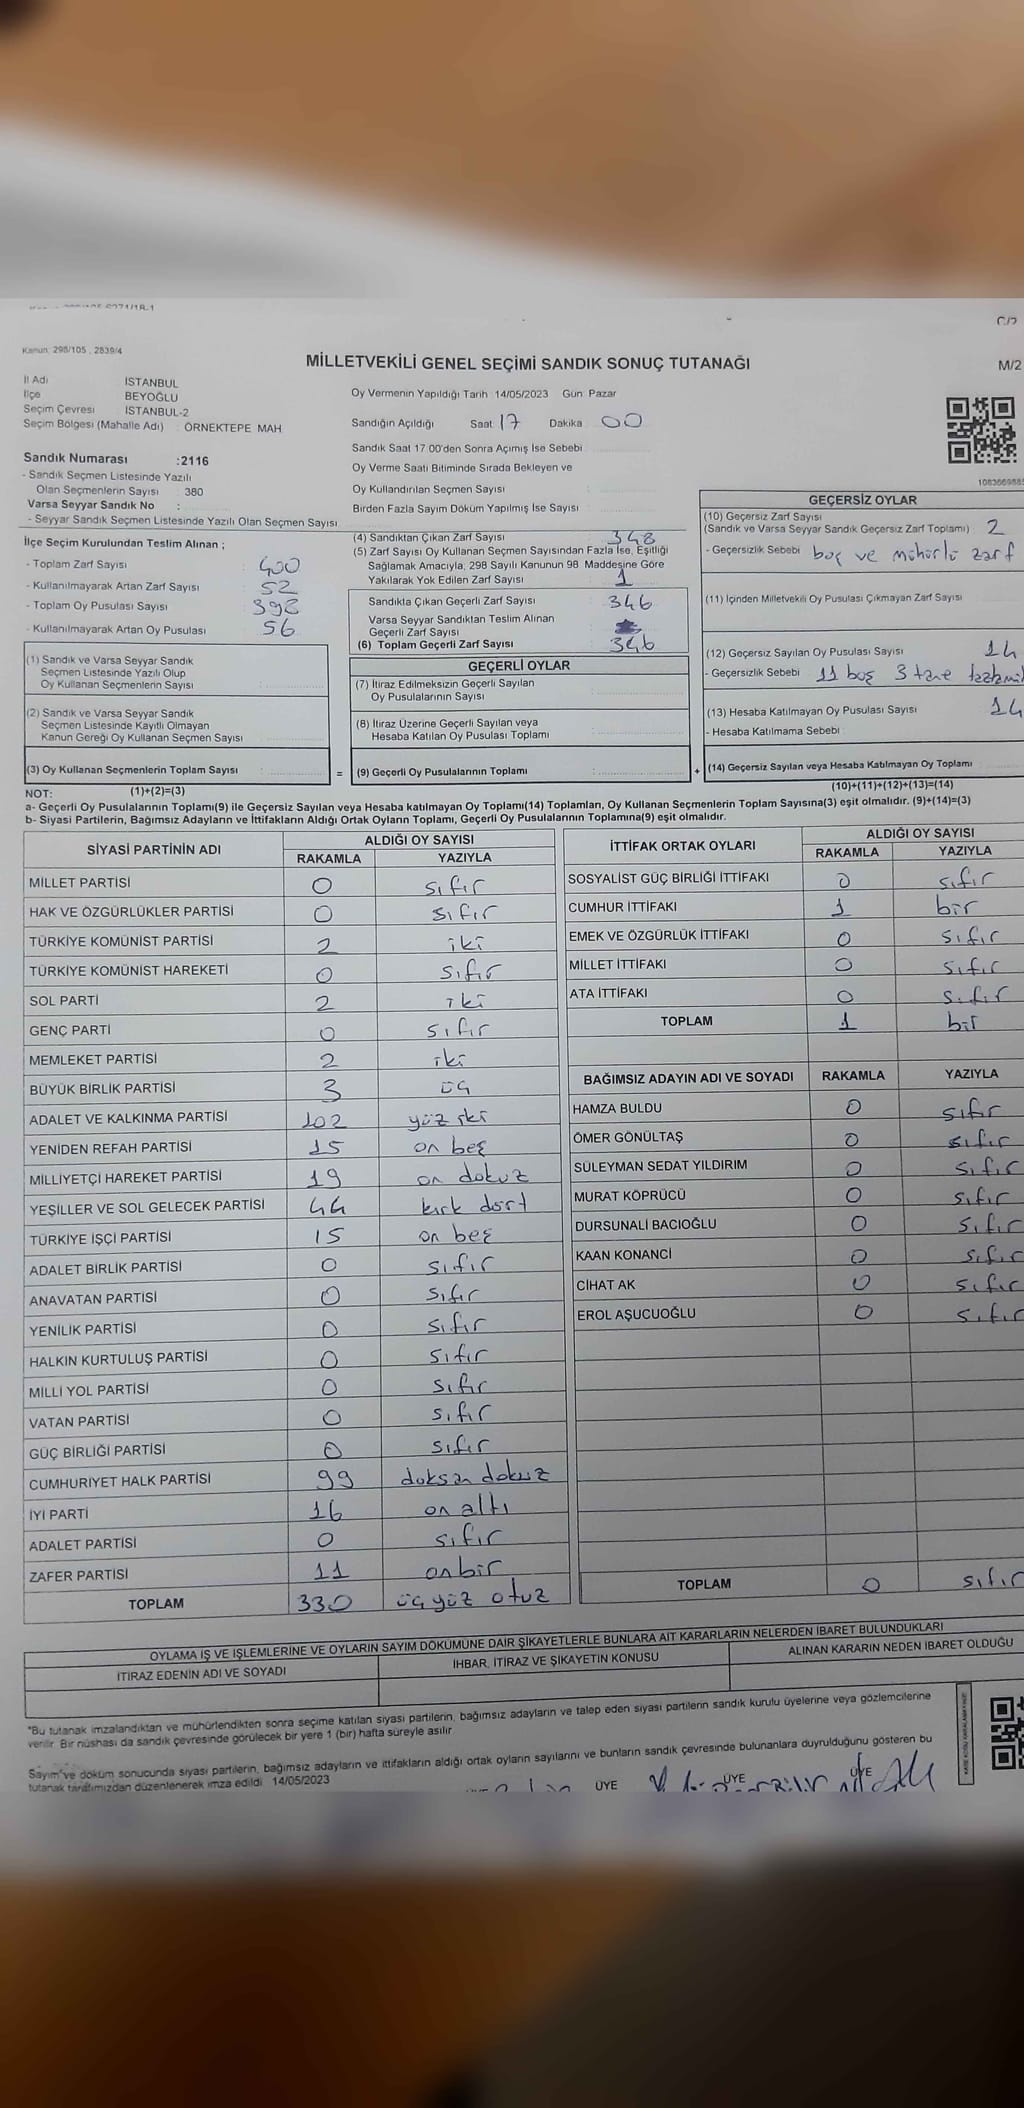 C/2
Kanun: 298/105 , 2839/4
MİLLETVEKİLİ GENEL SEÇİMİ SANDIK SONUÇ TUTANAĞI
M/2
İl Adı İSTANBUL
İlçe BEYOĞLU
Seçim Çevresi İSTANBUL-2
Seçim Bölgesi (Mahalle Adı) : ÖRNEKTEPE MAH
Oy Vermenin Yapıldığı Tarih 14/05/2023 Gün: Pazar
Sandığın Açıldığı Saat 17 Dakika 00
Sandık Saat 17:00'den Sonra Açımış İse Sebebi
Oy Verme Saati Bitiminde Sırada Bekleyen ve
Oy Kullandırılan Seçmen Sayısı :
Birden Fazla Sayım Döküm Yapılmış İse Sayısı :
Sandık Numarası :2116
- Sandık Seçmen Listesinde Yazılı
Olan Seçmenlerin Sayısı : 380
Varsa Seyyar Sandık No :
- Seyyar Sandık Seçmen Listesinde Yazılı Olan Seçmen Sayısı
İlçe Seçim Kurulundan Teslim Alınan ;
- Toplam Zarf Sayısı : 400
- Kullanılmayarak Artan Zarf Sayısı : 52
- Toplam Oy Pusulası Sayısı : 398
- Kullanılmayarak Artan Oy Pusulası : 56
(1) Sandık ve Varsa Seyyar Sandık
Seçmen Listesinde Yazılı Olup
Oy Kullanan Seçmenlerin Sayısı :
(2) Sandık ve Varsa Seyyar Sandık
Seçmen Listesinde Kayıtlı Olmayan
Kanun Gereği Oy Kullanan Seçmen Sayısı :
(3) Oy Kullanan Seçmenlerin Toplam Sayısı :
(4) Sandıktan Çıkan Zarf Sayısı : 348
(5) Zarf Sayısı Oy Kullanan Seçmen Sayısından Fazla İse, Eşitliği
Sağlamak Amacıyla, 298 Sayılı Kanunun 98. Maddesine Göre
Yakılarak Yok Edilen Zarf Sayısı : 1
Sandıkta Çıkan Geçerli Zarf Sayısı : 346
Varsa Seyyar Sandıktan Teslim Alınan
Geçerli Zarf Sayısı
(6) Toplam Geçerli Zarf Sayısı : 346
GEÇERLİ OYLAR
(7) İtiraz Edilmeksizin Geçerli Sayılan
Oy Pusulalarının Sayısı :
(8) İtiraz Üzerine Geçerli Sayılan veya
Hesaba Katılan Oy Pusulası Toplamı :
= (9) Geçerli Oy Pusulalarının Toplamı :
GEÇERSİZ OYLAR
(10) Geçersiz Zarf Sayısı
(Sandık ve Varsa Seyyar Sandık Geçersiz Zarf Toplamı) : 2
- Geçersizlik Sebebi : boş ve mühürlü zarf
(11) İçinden Milletvekili Oy Pusulası Çıkmayan Zarf Sayısı
(12) Geçersiz Sayılan Oy Pusulası Sayısı : 14
- Geçersizlik Sebebi : 11 boş 3 tane
(13) Hesaba Katılmayan Oy Pusulası Sayısı : 14
- Hesaba Katılmama Sebebi :
+ (14) Geçersiz Sayılan veya Hesaba Katılmayan Oy Toplamı :
NOT: (1)+(2)=(3)
(10)+(11)+(12)+(13)=(14)
a- Geçerli Oy Pusulalarının Toplamı(9) ile Geçersiz Sayılan veya Hesaba katılmayan Oy Toplamı(14) Toplamları, Oy Kullanan Seçmenlerin Toplam Sayısına(3) eşit olmalıdır. (9)+(14)=(3)
b- Siyasi Partilerin, Bağımsız Adayların ve İttifakların Aldığı Ortak Oyların Toplamı, Geçerli Oy Pusulalarının Toplamına(9) eşit olmalıdır.
SİYASİ PARTİNİN ADI ALDIĞI OY SAYISI
RAKAMLA YAZIYLA
MİLLET PARTİSİ 0 sıfır
HAK VE ÖZGÜRLÜKLER PARTİSİ 0 sıfır
TÜRKİYE KOMÜNİST PARTİSİ 2 iki
TÜRKİYE KOMÜNİST HAREKETİ 0 sıfır
SOL PARTİ 2 iki
GENÇ PARTİ 0 sıfır
MEMLEKET PARTİSİ 2 iki
BÜYÜK BİRLİK PARTİSİ 3 üç
ADALET VE KALKINMA PARTİSİ 102 yüz iki
YENİDEN REFAH PARTİSİ 15 on beş
MİLLİYETÇİ HAREKET PARTİSİ 19 on dokuz
YEŞİLLER VE SOL GELECEK PARTİSİ 44 kırk dört
TÜRKİYE İŞÇİ PARTİSİ 15 on beş
ADALET BİRLİK PARTİSİ 0 sıfır
ANAVATAN PARTİSİ 0 sıfır
YENİLİK PARTİSİ 0 sıfır
HALKIN KURTULUŞ PARTİSİ 0 sıfır
MİLLİ YOL PARTİSİ 0 sıfır
VATAN PARTİSİ 0 sıfır
GÜÇ BİRLİĞİ PARTİSİ 0 sıfır
CUMHURİYET HALK PARTİSİ 99 doksan dokuz
İYİ PARTİ 16 on altı
ADALET PARTİSİ 0 sıfır
ZAFER PARTİSİ 11 onbir
TOPLAM 330 üç yüz otuz
İTTİFAK ORTAK OYLARI ALDIĞI OY SAYISI
RAKAMLA YAZIYLA
SOSYALİST GÜÇ BİRLİĞİ İTTİFAKI 0 sıfır
CUMHUR İTTİFAKI 1 bir
EMEK VE ÖZGÜRLÜK İTTİFAKI 0 sıfır
MİLLET İTTİFAKI 0 sıfır
ATA İTTİFAKI 0 sıfır
TOPLAM 1 bir
BAĞIMSIZ ADAYIN ADI VE SOYADI RAKAMLA YAZIYLA
HAMZA BULDU 0 sıfır
ÖMER GÖNÜLTAŞ 0 sıfır
SÜLEYMAN SEDAT YILDIRIM 0 sıfır
MURAT KÖPRÜCÜ 0 sıfır
DURSUNALİ BACIOĞLU 0 sıfır
KAAN KONANCİ 0 sıfır
CİHAT AK 0 sıfır
EROL AŞUCUOĞLU 0 sıfır
TOPLAM 0 sıfır
OYLAMA İŞ VE İŞLEMLERİNE VE OYLARIN SAYIM DÖKÜMÜNE DAİR ŞİKAYETLERLE BUNLARA AİT KARARLARIN NELERDEN İBARET BULUNDUKLARI
İTİRAZ EDENİN ADI VE SOYADI İHBAR, İTİRAZ VE ŞİKAYETİN KONUSU ALINAN KARARIN NEDEN İBARET OLDUĞU
*Bu tutanak imzalandıktan ve mühürlendikten sonra seçime katılan siyasi partilerin, bağımsız adayların ve talep eden siyasi partilerin sandık kurulu üyelerine veya gözlemcilerine
verilir. Bir nüshası da sandık çevresinde görülecek bir yere 1 (bir) hafta süreyle asılır.
Sayım ve döküm sonucunda siyasi partilerin, bağımsız adayların ve ittifakların aldığı ortak oyların sayılarını ve bunların sandık çevresinde bulunanlara duyrulduğunu gösteren bu
tutanak tarafımızdan düzenlenerek imza edildi. 14/05/2023
ÜYE ÜYE ÜYE